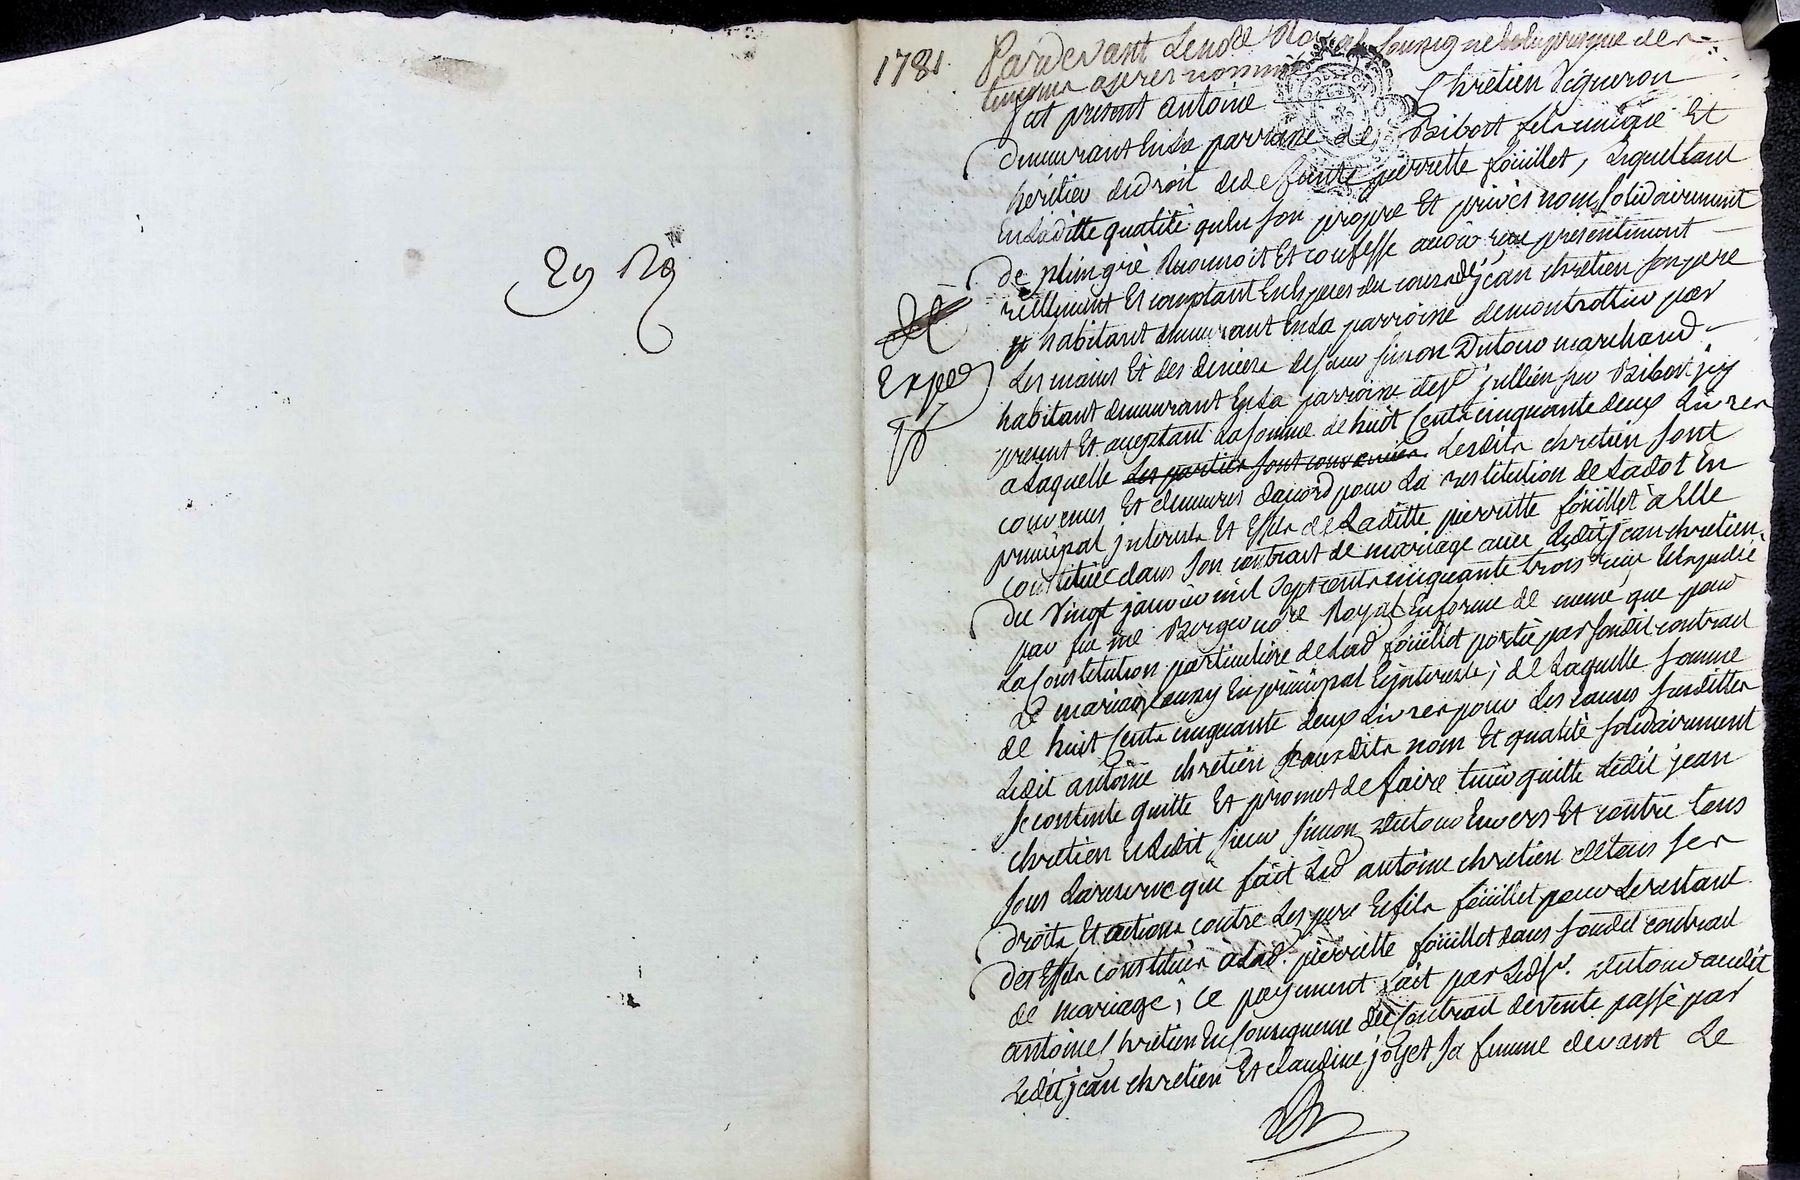 29 Rg
1781
Pardevant Le no.re Royal soussigné Et En presence des
temoins apres nommés
fut present antoine Chretien Vigneron
demeurant En La parroisse de Bibost fils unique Et
héritier de droit de defunte pierrette foüillet, Lequel tant
En Laditte qualité qu'en son propre Et privés nom solidairement
de plein gré Reconnoit Et confesse avoir reçu presentement
réellement Et comptant En Especes du cours de jean chretien son pere
habitant demeurant En La parroisse de montrottier par
Les mains Et des deniers de sieur Simon Dutour marchand
habitant demeurant En La parroisse de St jullien sur Bibost icy
present Et aceptant La somme de huit Cents cinquante deux Livres
a Laquelle Les parties sont convenues Lesdits chretien sont
convenus Et demeurés d'acord pour La restitution de La dot En
principal interests Et Effets de Laditte pierrette foüillet à Elle
constituée dans son contract de mariage avec Ledit jean chretien
du Vingt janvier mil sept cents cinquante trois reçu Et Expedié
par feu me Berger no.re Royal En forme de meme que pour
La Constitution particuliere de Lad foüillet portée par sondit contract
de mariage aussy En principal Et interests; de Laquelle somme
de huit Cents cinquante deux Livres pour Les causes susdittes
Ledit antoine chretien Esdits nom Et qualité solidairement
se contente quitte Et promet de faire tenir quitte Ledit jean
chretien Et Ledit sieur Simon Dutour Envers Et contre tous
sous La reserve que fait Led antoine chretien de tous ses
droits Et actions contre Les pere Et fils foüillet pour Le restant
des Effets constitués à Lad. pierrette foüillet dans sondit contract
de mariage; ce payement fait par Led Sr. Dutour audit
antoine Chretien En Consequence du Contract de vente passé par
Ledit jean chretien Et claudine joyet sa femme devant Le
Exped